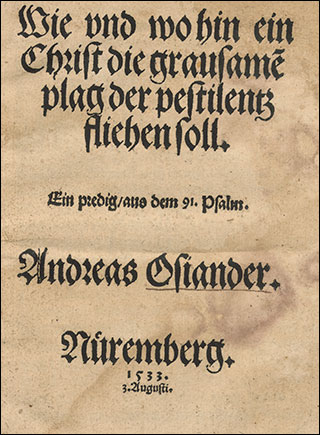 Wie vnd wo hin ein
Christ die grausamē
plag der pestilentz
fliehen soll.
Ein predig/aus dem 91. Psalm.
Andreas Osiander.
Nüremberg.
1533.
3. Augusti.